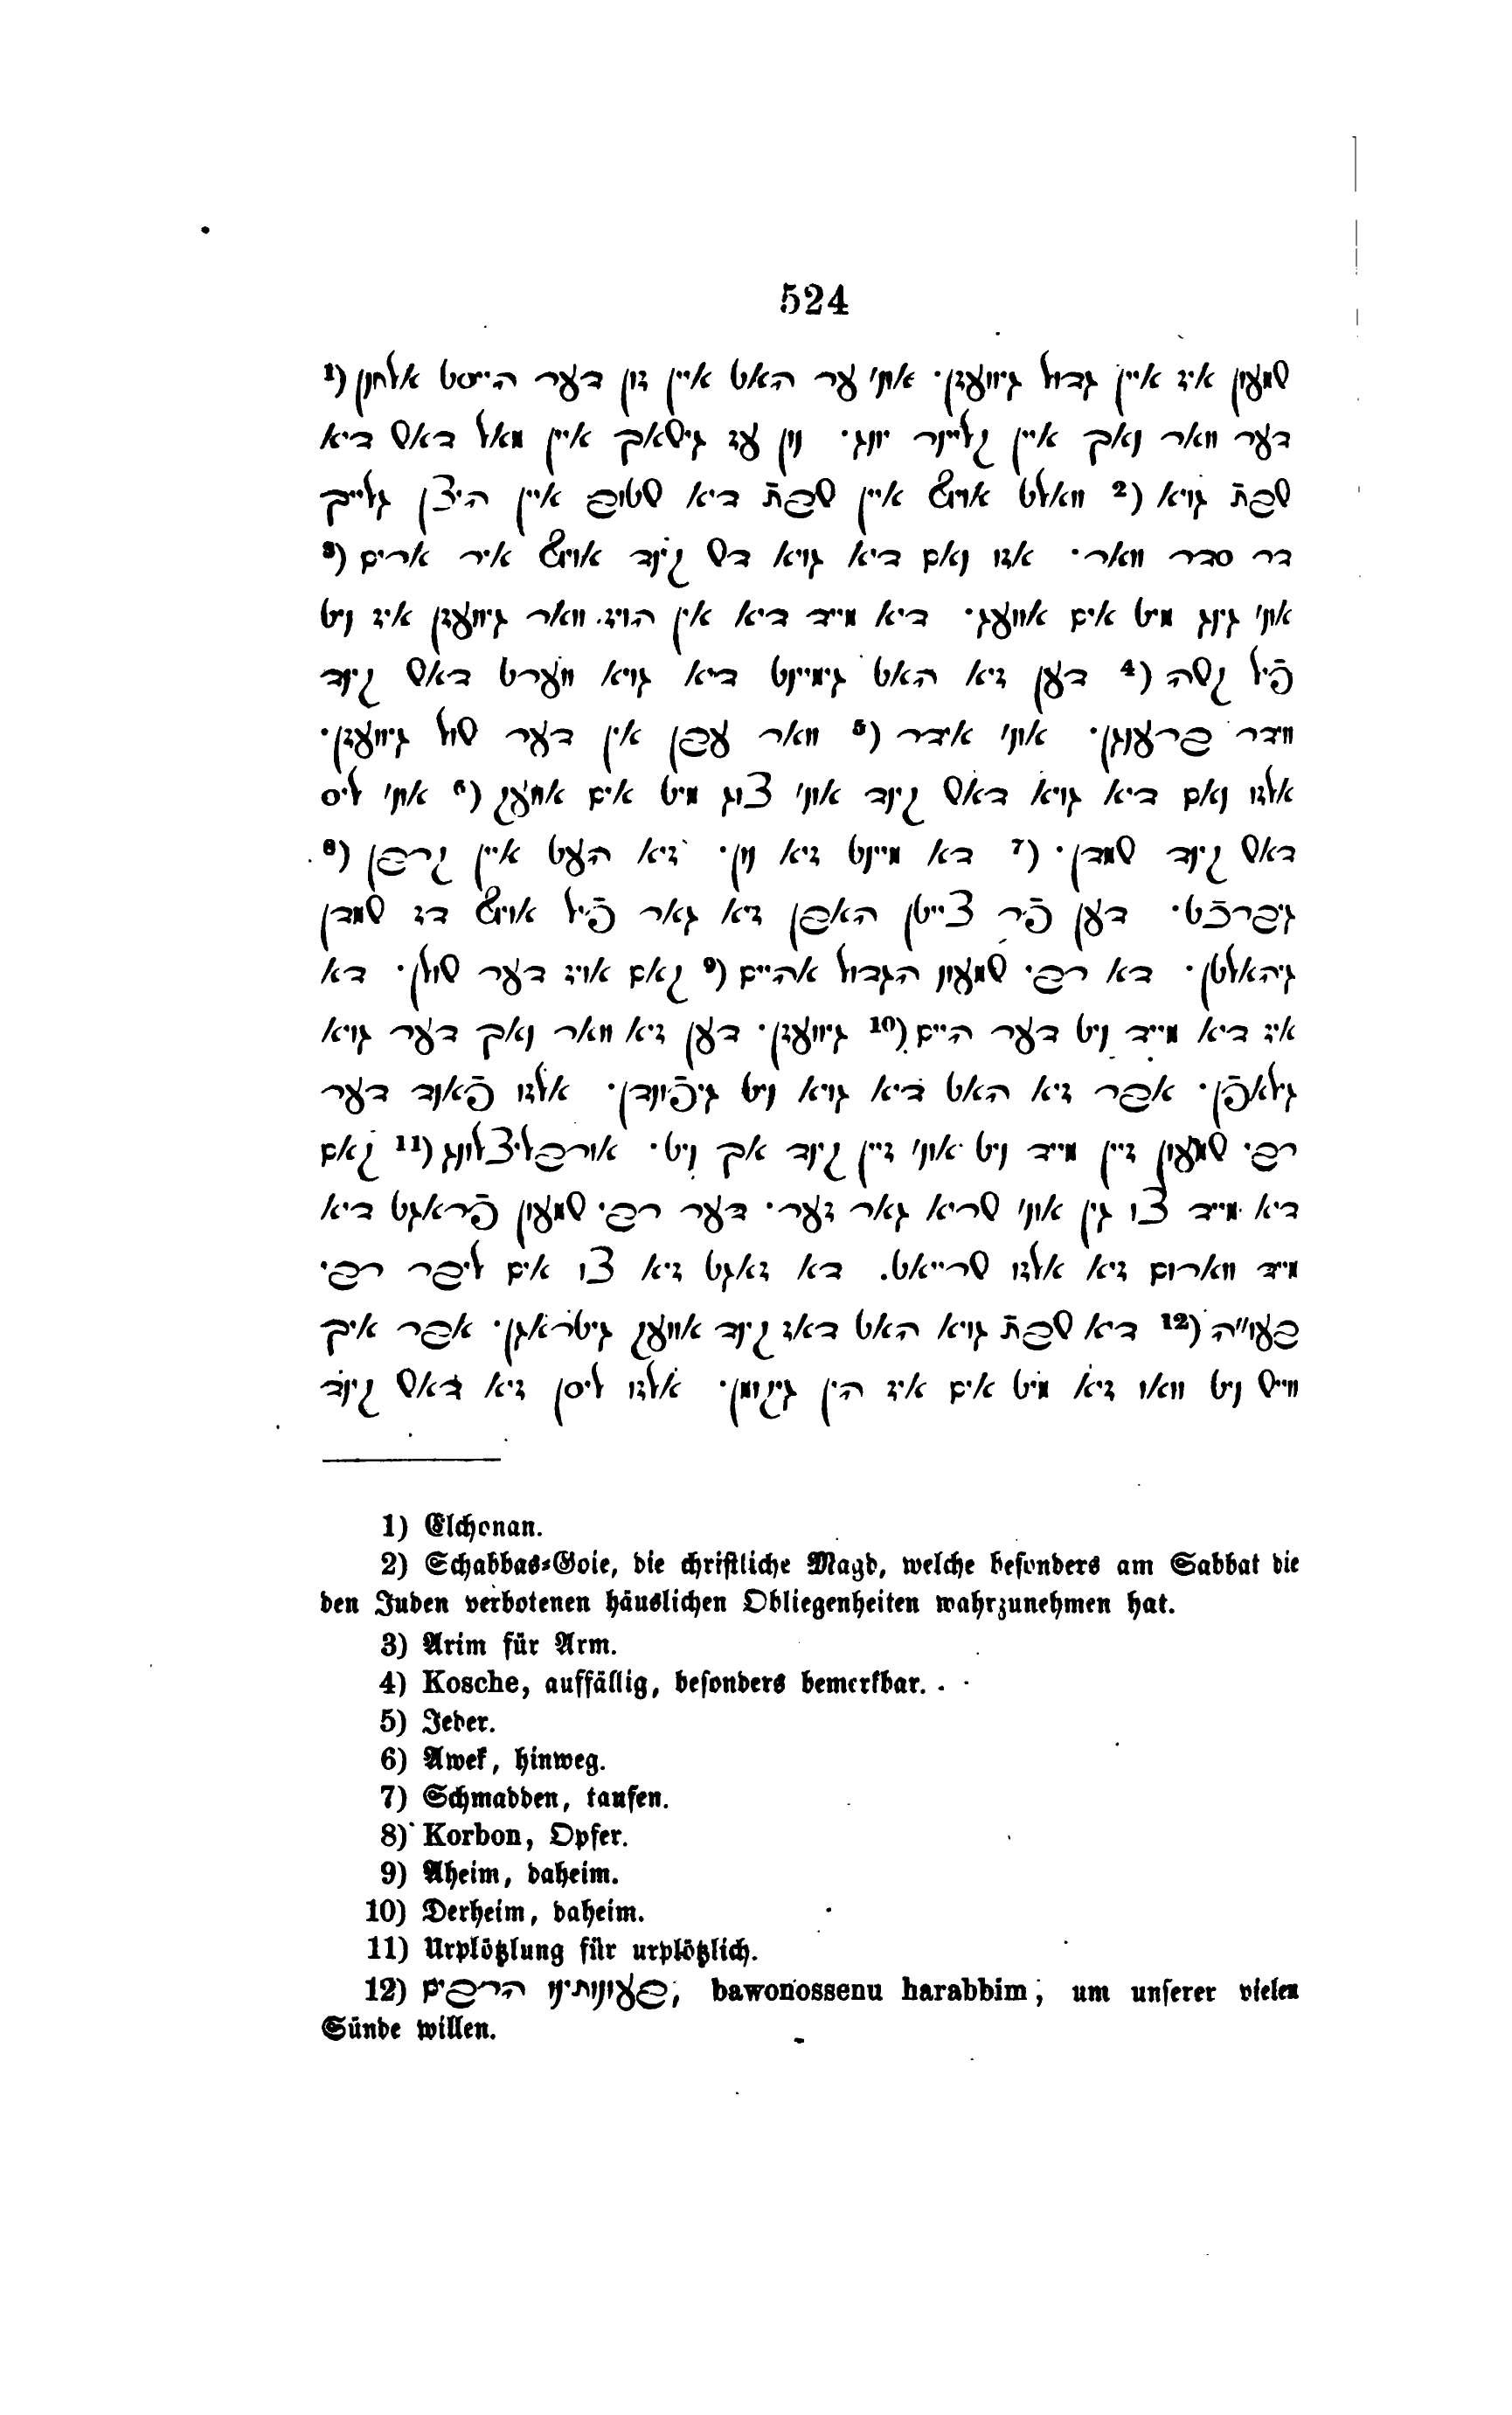 524
שמעון איז איין גדול גיוועזן· אונ' ער האט איין זון דער הייסט אלחנן (1
דער וואר נאך איין קליינר יונג· נון עז גישאך איין מאל דאש דיא
שבת גויא (2 וואלט אויש איין שבת דיא שטוב איין היצן גלייך
דר סדר וואר· אזו נאם דיא גויא דש קינד אויש איר ארים (3
אונ' גינג מיט אים אוועג· דיא מייד דיא אין הויז וואר גיוועזן איז ניט
פֿיל קשה (4 דען זיא האט גימיינט דיא גויא ווערט דאש קינד
ווידר ברענגן· אונ' אידר (5 וואר עבן אין דער שול גיוועזן·
אלזו נאם דיא גויא דאש קינד אונ' צוג מיט אים אוועק (6 אונ' ליס
דאש קינד שמדן· (7 דא מיינט זיא נון· זיא העט איין קרבן (8
גיברכֿט· דען פֿר צייטן האבן זיא גאר פֿיל אויש דז שמדן
גיהאלטן· דא רבי שמעון הגדול אהיים (9 קאם אויז דער שולן· דא
איז דיא מייד ניט דער היים (10 גיוועזן· דען זיא וואר נאך דער גויא
גלאפֿן· אבר זיא האט דיא גויא ניט גיפֿינדן· אלזו פֿאנד דער
רבי שמעון זיין מייד ניט אונ' זיין קינד אך ניט· אורבליצלונג (11 קאם
דיא מייד צו גין אונ' שריא גאר זער· דער רבי שמעון פֿראגט דיא
מייד ווארום זיא אלזו שרייאט. דא זאגט זיא צו אים ליבר רבי
בעו״ה (12 דיא שבת גויא האט דאז קינד אוועק גיטראגן· אבר איך
ווייש ניט וואו זיא מיט אים איז הין גיקומן· אלזו ליסן זיא דאש קינד
1) Elchonan.
2) Schabbas-Goie, die christliche Magd, welche besonders am Sabbat die
den Juden verbotenen häuslichen Obliegenheiten wahrzunehmen hat.
3) Arim für Arm.
4) Kosche, auffällig, besonders bemerkbar.
5) Jeder.
6) Awek, hinweg.
7) Schmadden, taufen.
8) Korbon, Opfer.
9) Aheim, daheim.
10) Derheim, daheim.
11) Urplötzlung für urplötzlich.
12) בעונותינו הרבים, bawonossenu harabbim, um unserer vielen
Sünde willen.